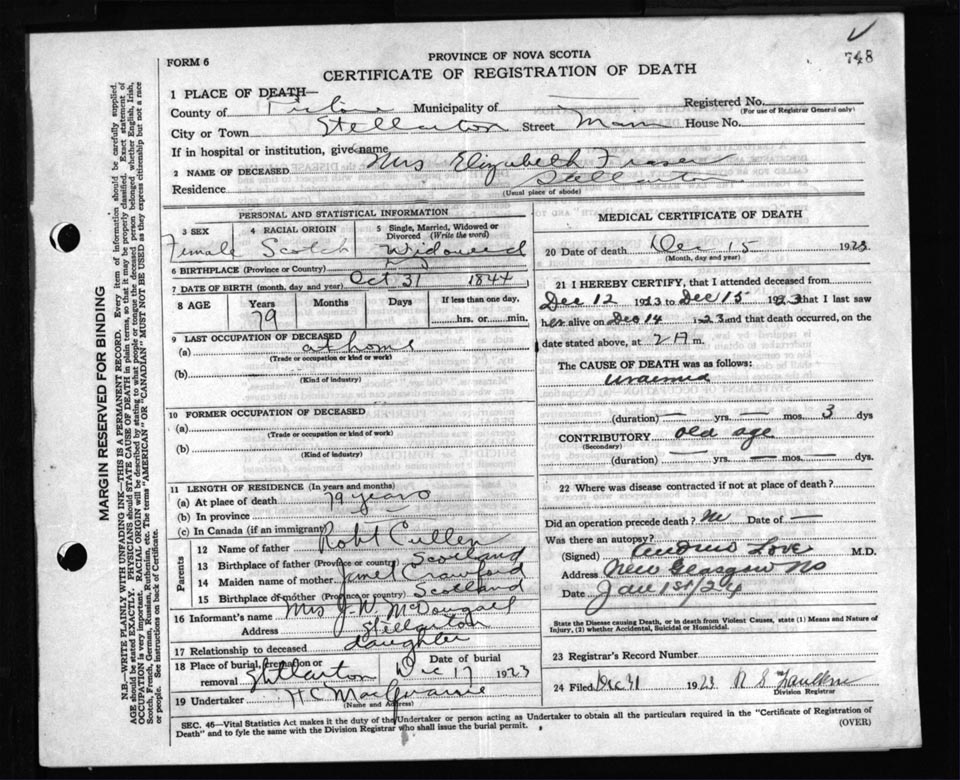 748
FORM 6
PROVINCE OF NOVA SCOTIA
CERTIFICATE OF REGISTRATION OF DEATH
1 PLACE OF DEATH—
County of Pictou Municipality of Registered No.
(For use of Registrar General only)
City or Town Stellarton Street Main House No.
If in hospital or institution, give name
2 NAME OF DECEASED Mrs Elizabeth Fraser
Residence Stellarton
(Usual place of abode)
PERSONAL AND STATISTICAL INFORMATION
3 SEX 4 RACIAL ORIGIN 5 Single, Married, Widowed or Divorced (Write the word)
Female Scotch Widowed
6 BIRTHPLACE (Province or Country)
7 DATE OF BIRTH (month, day and year) Oct 31 1844
8 AGE Years Months Days If less than one day,
79 hrs. or min.
9 LAST OCCUPATION OF DECEASED
(a) at home
(Trade or occupation or kind or work)
(b)
(Kind of industry)
10 FORMER OCCUPATION OF DECEASED
(a)
(Trade or occupation or kind of work)
(b)
(Kind of industry)
11 LENGTH OF RESIDENCE (In years and months)
(a) At place of death 79 years
(b) In province
(c) In Canada (if an immigrant)
Parents
12 Name of father Robt Cullen
13 Birthplace of father (Province or country) Scotland
14 Maiden name of mother Janet Crawford
15 Birthplace of mother (Province or country) Scotland
16 Informant's name Mrs J. W. McDougall
Address Stellarton
17 Relationship to deceased daughter
18 Place of burial, cremation or removal Stellarton Date of burial Dec 17 1923
19 Undertaker H C
(Name and Address)
MEDICAL CERTIFICATE OF DEATH
20 Date of death Dec 15 1923
(Month, day and year)
21 I HEREBY CERTIFY, that I attended deceased from
Dec 12 1923 to Dec 15 1923 that I last saw
her alive on Dec 14 1923 and that death occurred, on
date stated above, at 2 A m.
The CAUSE OF DEATH was as follows:
uraemia
(duration) — yrs. — mos. 3 dys
CONTRIBUTORY old age
(Secondary)
(duration) — yrs. — mos. — dys.
22 Where was disease contracted if not at place of death?
Did an operation precede death? No Date of —
Was there an autopsy?
(Signed) Andrew Love M.D.
Address New Glasgow NS
Date Jan 1st/24
State the Disease causing Death, or in death from Violent Causes, state (1) Means and Nature of Injury, (2) whether Accidental, Suicidal or Homicidal.
23 Registrar's Record Number
24 Filed Dec 31 1923 R S
Division Registrar
SEC. 46—Vital Statistics Act makes it the duty of the Undertaker or person acting as Undertaker to obtain all the particulars required in the "Certificate of Registration of
Death" and to fyle the same with the Division Registrar who shall issue the burial permit.
(OVER)
MARGIN RESERVED FOR BINDING
N.B.—WRITE PLAINLY WITH UNFADING INK—THIS IS A PERMANENT RECORD. Every item of information should be carefully supplied.
AGE should be stated EXACTLY. PHYSICIANS should STATE CAUSE OF DEATH in plain terms, so that it may be properly classified. Exact statement of
OCCUPATION is very important. RACIAL ORIGIN will be described by stating to what people or tongue the deceased person belonged whether English, Irish,
Scotch, French, German, Russian, Ruthenian, etc. The terms "AMERICAN" OR "CANADIAN" MUST NOT BE USED as they express citizenship but not a race
or people. See instructions on back of Certificate.